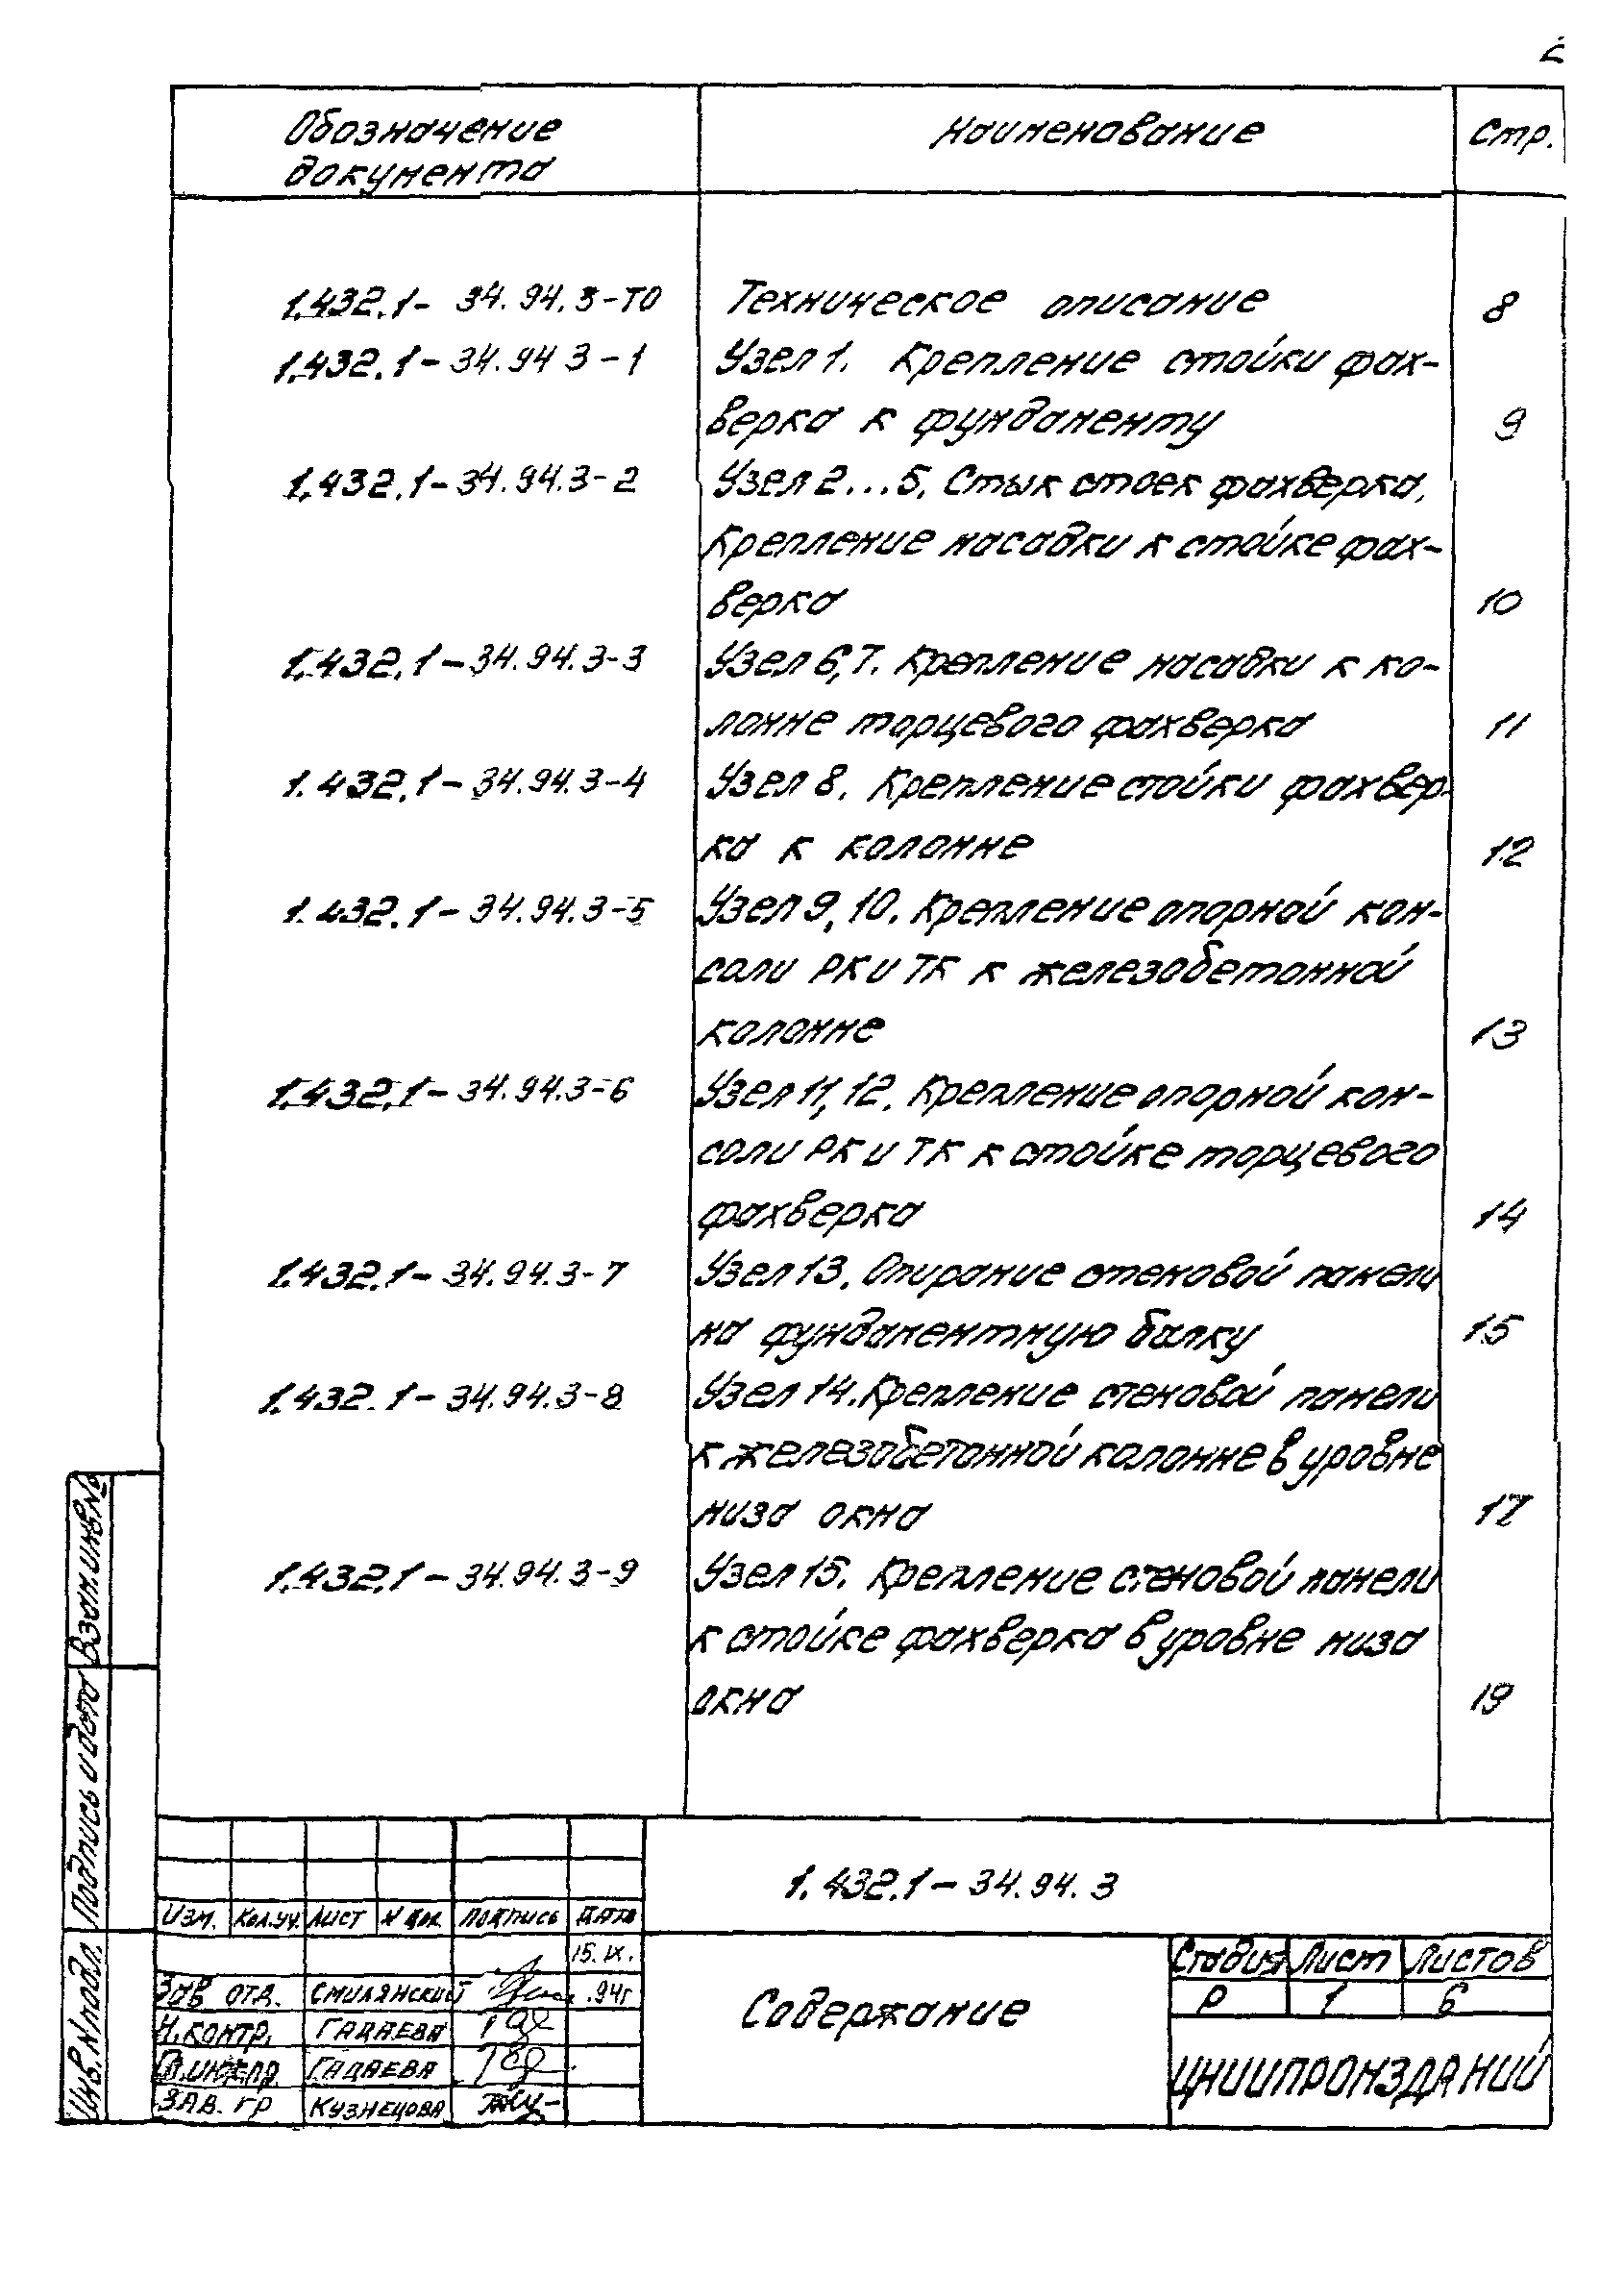 2
Обозначение документа Наименование Стр.
1.432.1-34.94.3-ТО Техническое описание 8
1.432.1-34.94 3-1 Узел 1. Крепление стойки фах-
верка к фундаменту 9
1.432.1-34.94.3-2 Узел 2...5. Стык стоек фахверка.
Крепление насадки к стойке фах-
верка 10
1.432.1-34.94.3-3 Узел 6,7. Крепление насадки к ко-
лонне торцевого фахверка 11
1.432.1-34.94.3-4 Узел 8. Крепление стойки фахвер-
ка к колонне 12
1.432.1-34.94.3-5 Узел 9,10. Крепление опорной кон-
соли РК и ТК к железобетонной
колонне 13
1.432.1-34.94.3-6 Узел 11,12. Крепление опорной кон-
соли РК и ТК к стойке торцевого
фахверка 14
1.432.1-34.94.3-7 Узел 13. Опирание стеновой панели
на фундаментную балку 15
1.432.1-34.94.3-8 Узел 14. Крепление стеновой панели
к железобетонной колонне в уровне
низа окна 17
1.432.1-34.94.3-9 Узел 15. Крепление стеновой панели
к стойке фахверка в уровне низа
окна 19
Взам.инв.№
Подпись и дата
Инв.N подл.
1.432.1-34.94.3
Изм. Кол.уч. Лист N док. Подпись Дата
15.IX.
Зав отд. Смилянский .94г
Н.контр. Гадаева
Гл.инж.пр. Гадаева
Зав. гр Кузнецова
Содержание
Стадия Лист Листов
Р 1 6
ЦНИИПРОМЗДАНИЙ